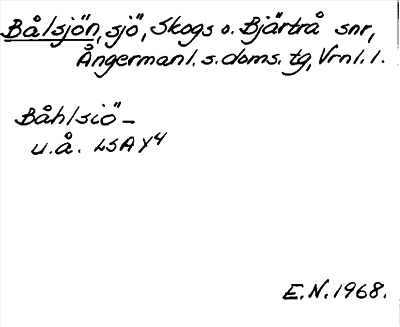 Bålsjön, sjö, Skogs o. Bjärtrå snr,
Ångermanl. s. doms. tg, Vrnl. l.
Båhlsiö -
u.å. LSA Y4
E.N. 1968.